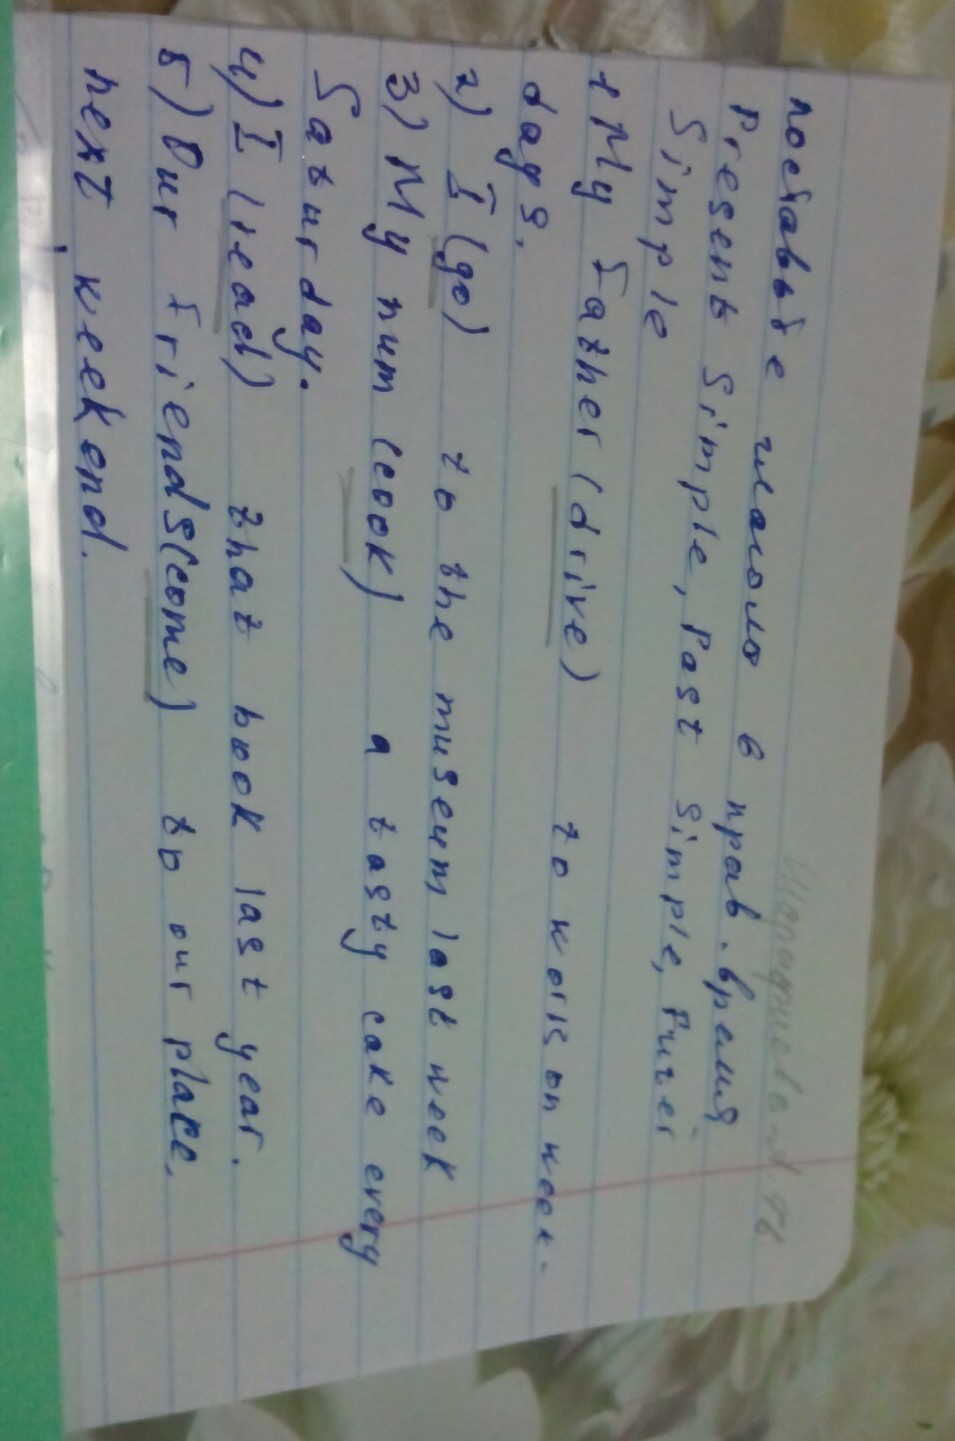 поставьте глагол в прав. время
Present Simple, Past Simple, Futer
Simple
1 My Father (drive) to work on week-
days.
2) I (go) to the museum last week
3) My mum (cook) a tasty cake every
Saturday.
4) I (read) that book last year.
5) Our friends (come) to our place.
next weekend.